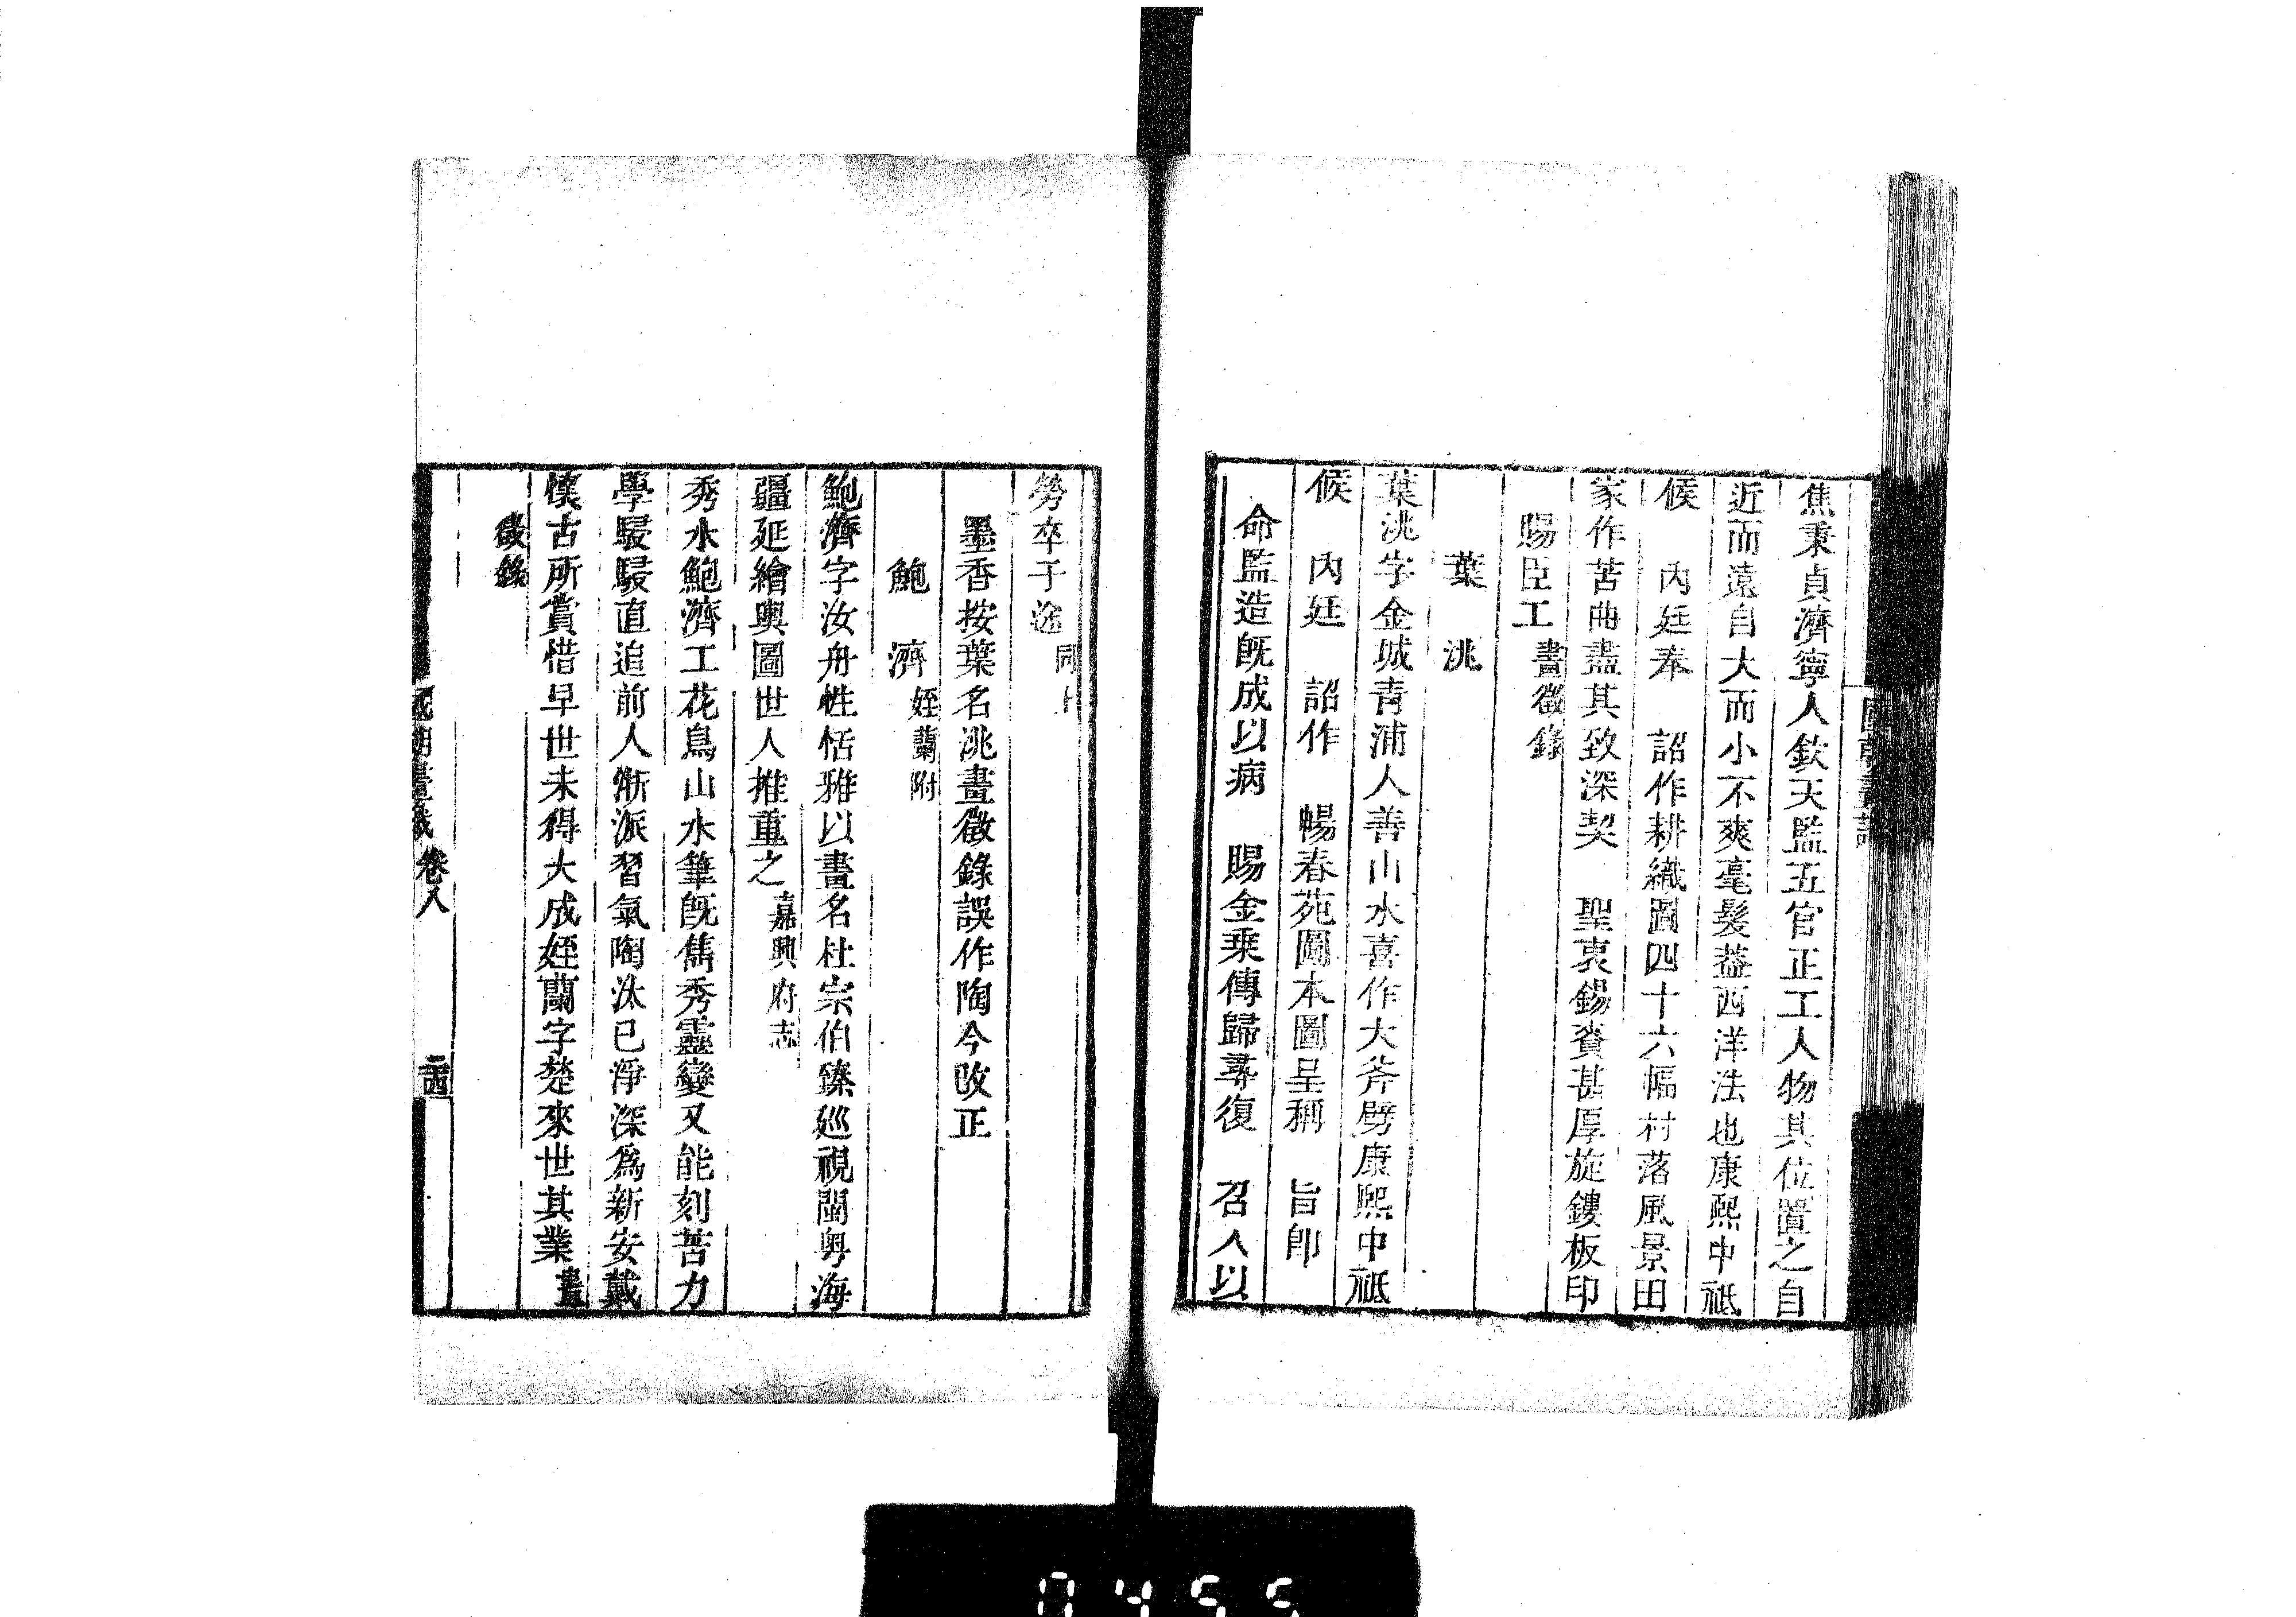 焦秉貞濟寧人欽天監五官正工人物其位置之自
近而遠自大而小不爽毫髮葢西洋法也康熙中祗
候　內廷奉　詔作耕織圖四十六幅村落風景田
家作苦曲盡其致深契　聖衷錫賚甚厚旋鏤板印
賜臣工畫徵錄
葉洮
葉洮字金城青浦人善山水喜作大斧劈康熙中祗
候　內廷　詔作　暢春苑圖本圖呈稱　旨卽
命監造旣成以病　賜金乘傳歸尋復　召入以
勞卒子途同上
墨香按葉名洮畫徵錄誤作陶今改正
鮑濟姪蘭附
鮑濟字汝舟性恬雅以畫名杜宗伯臻巡視閩粤海
疆延繪輿圖世人推重之嘉興府志
秀水鮑濟工花鳥山水筆旣雋秀靈變又能刻苦力
學駸駸直追前人浙派習氣陶汰已淨深為新安戴
懷古所賞惜早世未得大成姪蘭字楚來世其業畫
徵錄
國朝畫識　卷八　　
0455